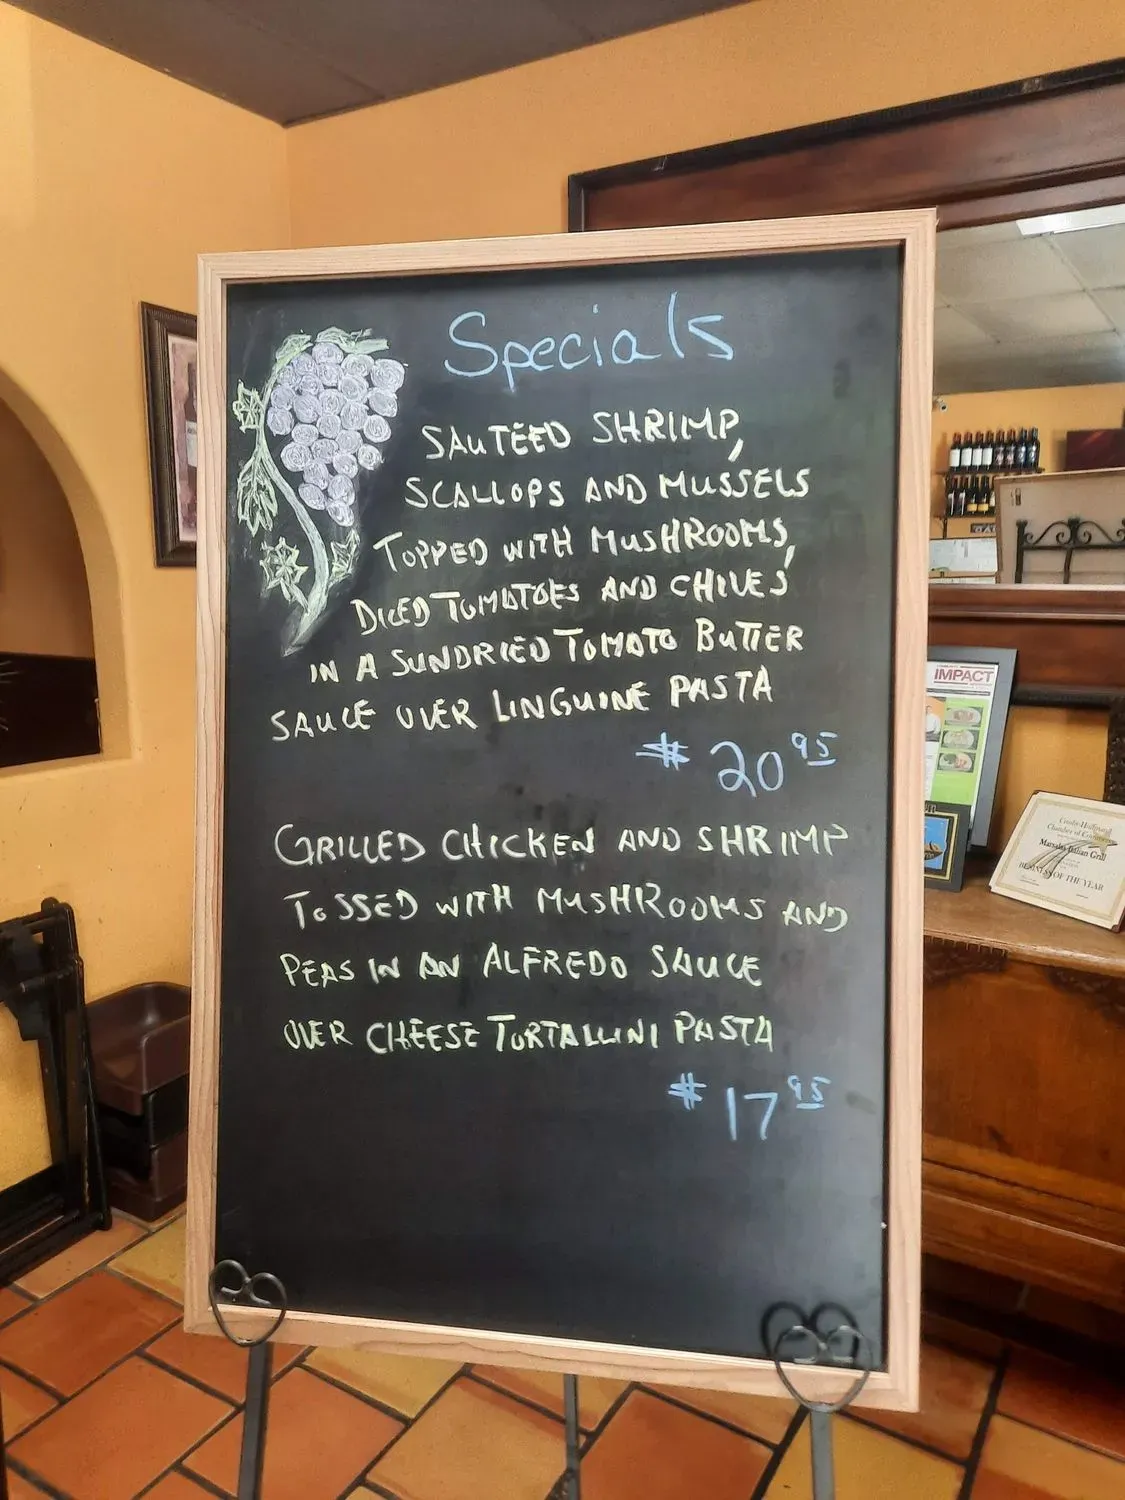 Specials
SAUTEED SHRIMP,
SCALLOPS AND MUSSELS
TOPPED WITH MUSHROOMS,
DICED TOMATOES AND CHIVES
IN A SUNDRIED TOMATO BUTTER
SAUCE OVER LINGUINE PASTA
$ 20 95
GRILLED CHICKEN AND SHRIMP
TOSSED WITH MUSHROOMS AND
PEAS IN AN ALFREDO SAUCE
OVER CHEESE TORTALLINI PASTA
$ 17 95
IMPACT
Crosby-Huffman
Chamber of Commerce
Italian Grill
BUSINESS OF THE YEAR